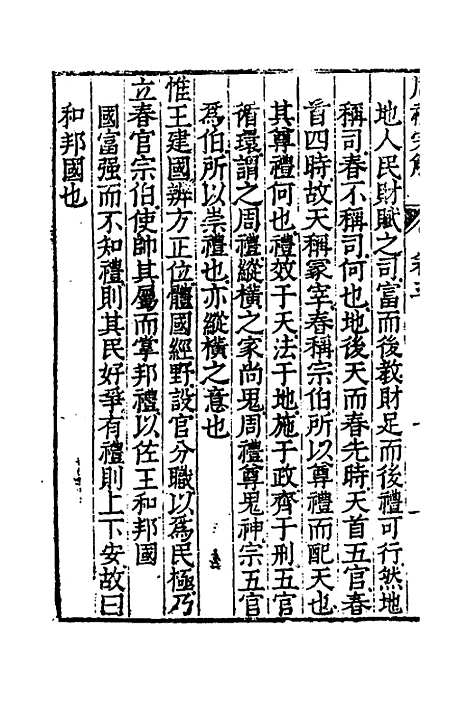 地人民財賦之司富而後教財足而後禮可行然地
稱司春不稱司何也地後天而春先時天首五官春
首四時故天稱冢宰春稱宗伯所以尊禮而配天也
其尊禮何也禮效于天法于地施于政齊于刑五官
循環謂之周禮縱橫之家尚鬼周禮尊鬼神宗五官
爲伯所以崇禮也亦縱橫之意也
惟王建國辨方正位體國經野設官分職以爲民極乃
立春官宗伯使帥其屬而掌邦禮以佐王和邦國
國富强而不知禮則其民好爭有禮則上下安故曰
和邦國也